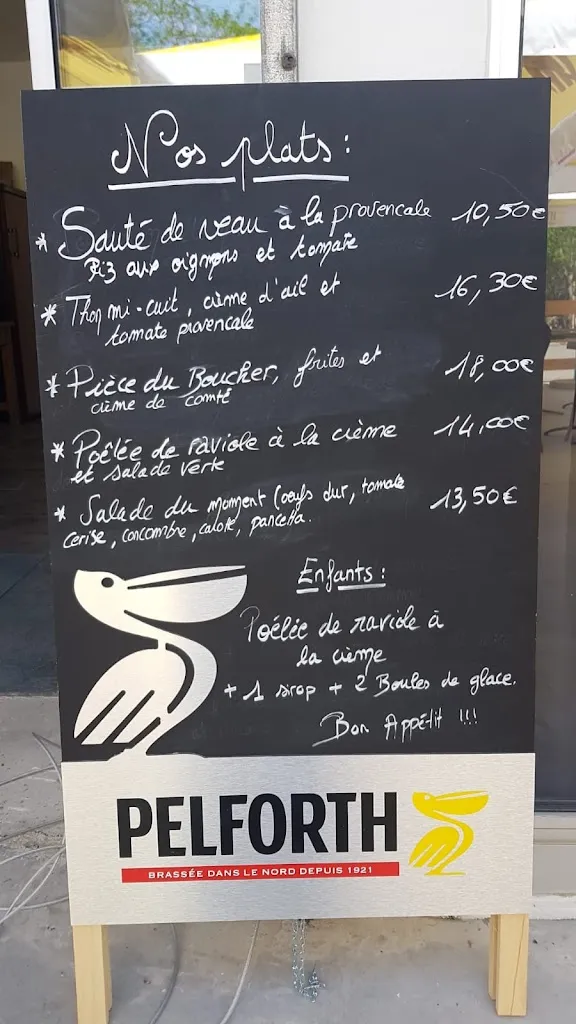 Nos plats :
* Sauté de veau à la provencale 10,50€
Riz aux oignons et tomate
* Thon mi-cuit, crème d'ail et 16,30€
tomate provencale
* Pièce du Boucher, frites et 18,00€
crème de comté
* Poêlée de raviole à la crème 14,00€
et salade verte
* Salade du moment (oeufs dur, tomate 13,50€
cerise, concombre, carotte, pancetta.
Enfants :
Poélée de raviole à
la crème
+ 1 sirop + 2 Boules de glace.
Bon Appétit !!!
PELFORTH
BRASSÉE DANS LE NORD DEPUIS 1921